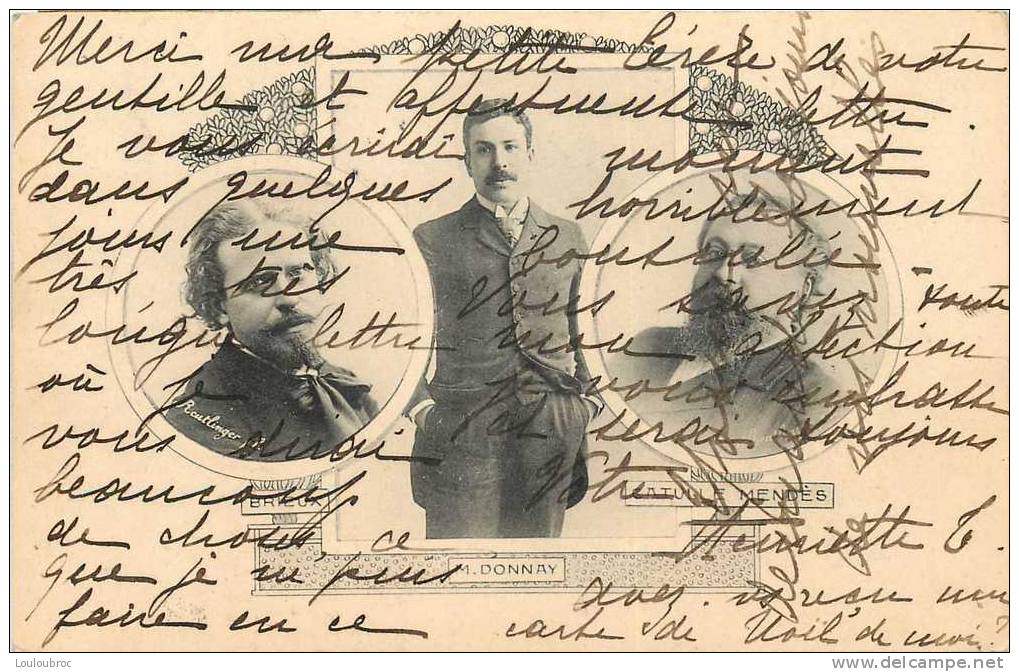 Merci ma petite Cérèze de votre
gentille et affectueuse lettre.
Je vous écrirai
dans quelques
jours une
très très
longue lettre
où je
vous dirai
beaucoup
de choses, ce
que je ne puis
faire en ce
moment
horriblement
bousculée
Vous savez toute
mon affection
je vous embrasse
et serai toujours
Votre
Henriette C.
avez-vs reçu une
carte de Noël de moi?
Reutlinger
BRIEUX
CATULLE MENDÈS
M. DONNAY
Louloubroc
www.delcampe.net